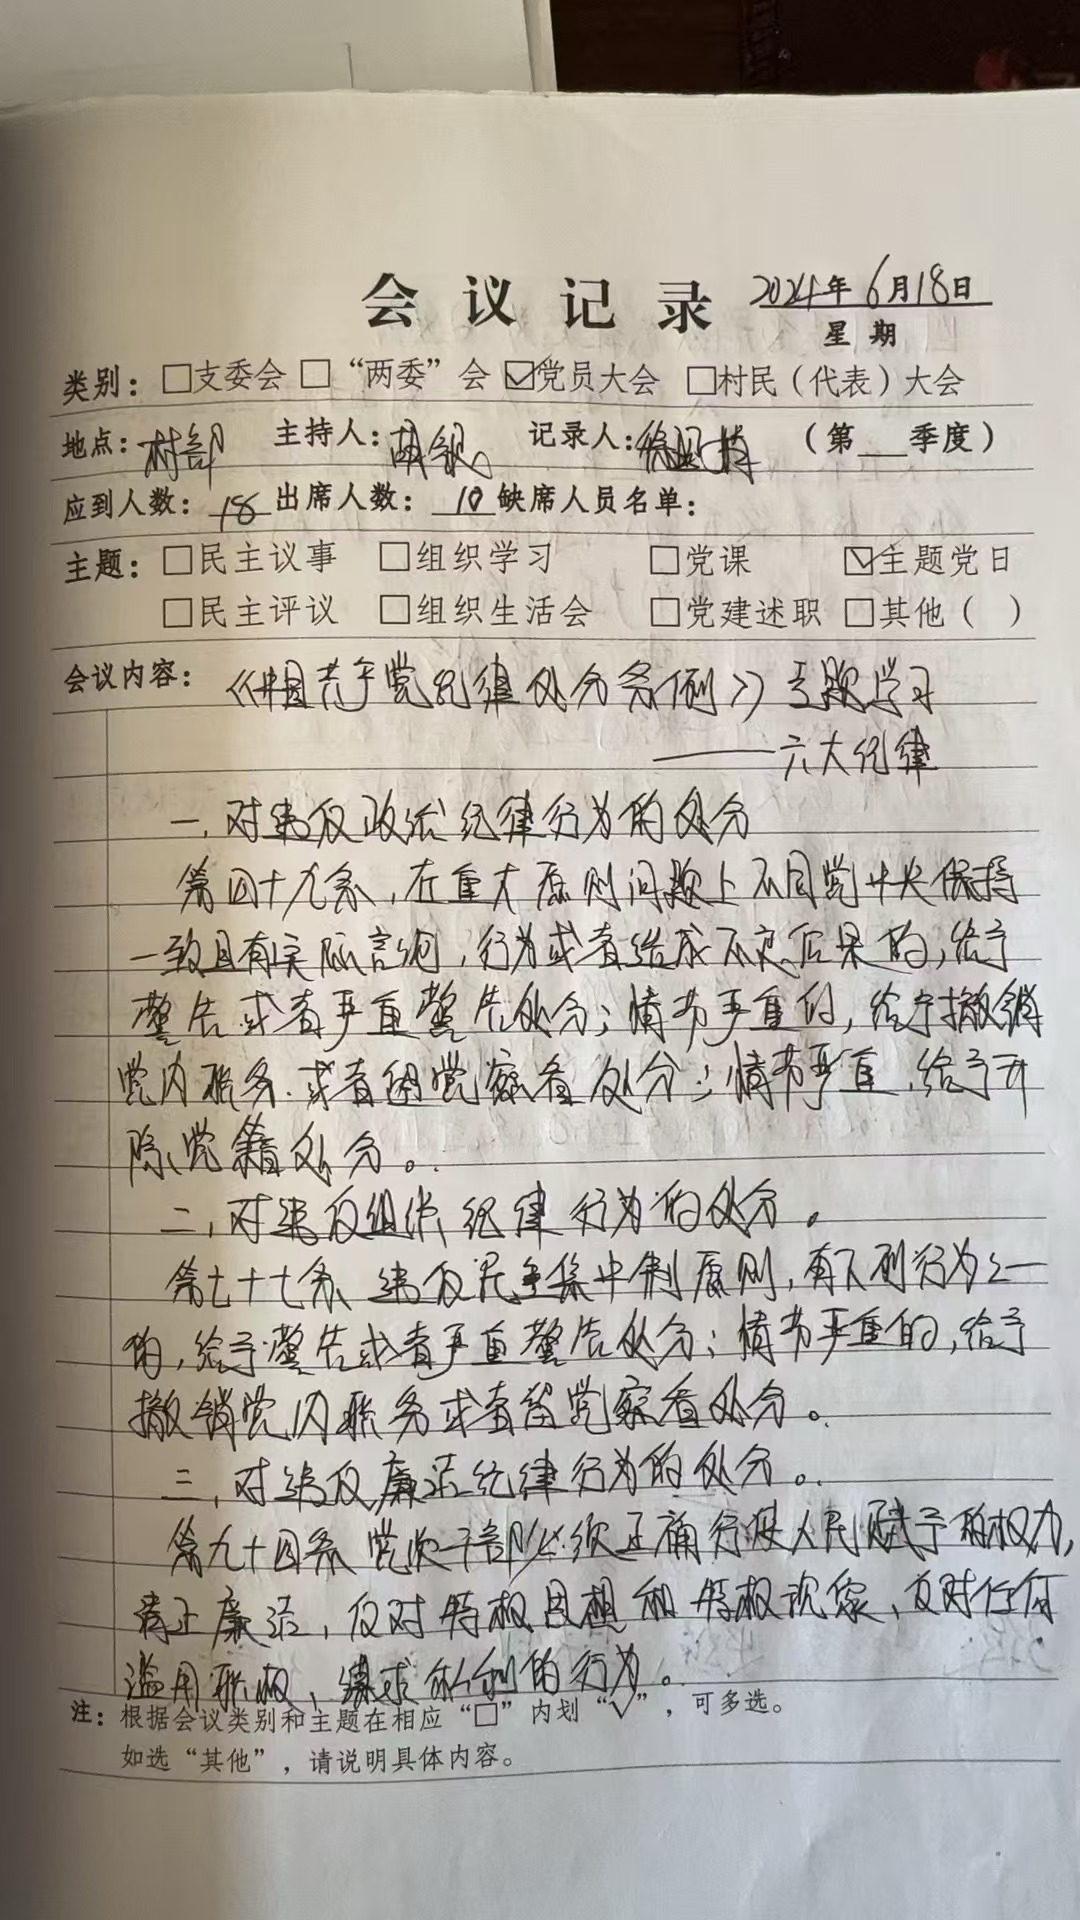 会议记录 2024年6月18日
星期
类别：□支委会 □“两委”会 ☑党员大会 □村民（代表）大会
地点：村部 主持人：胡银 记录人：徐 （第 季度）
应到人数：18 出席人数：10 缺席人员名单：
主题：□民主议事 □组织学习 □党课 ☑主题党日
□民主评议 □组织生活会 □党建述职 □其他（ ）
会议内容：《中国共产党纪律处分条例》专题学习
——六大纪律
一、对违反政治纪律行为的处分
第四十九条，在重大原则问题上不同党中央保持
一致且有实际言论，行为或者造成不良后果的，给予
警告或者严重警告处分；情节严重的，给予撤销
党内职务、或者留党察看处分；情节严重，给予开
除党籍处分。
二，对违反组织纪律行为的处分。
第七十七条 违反民主集中制原则，有下列行为之一
的，给予警告或者严重警告处分；情节严重的，给予
撤销党内职务或者留党察看处分。
三，对违反廉洁纪律行为的处分。
第九十四条 党员干部必须正确行使人民赋予的权力，
清正廉洁，反对特权思想和特权现象，反对任何
滥用职权、谋求私利的行为。
注：根据会议类别和主题在相应“□”内划“√”，可多选。
如选“其他”，请说明具体内容。